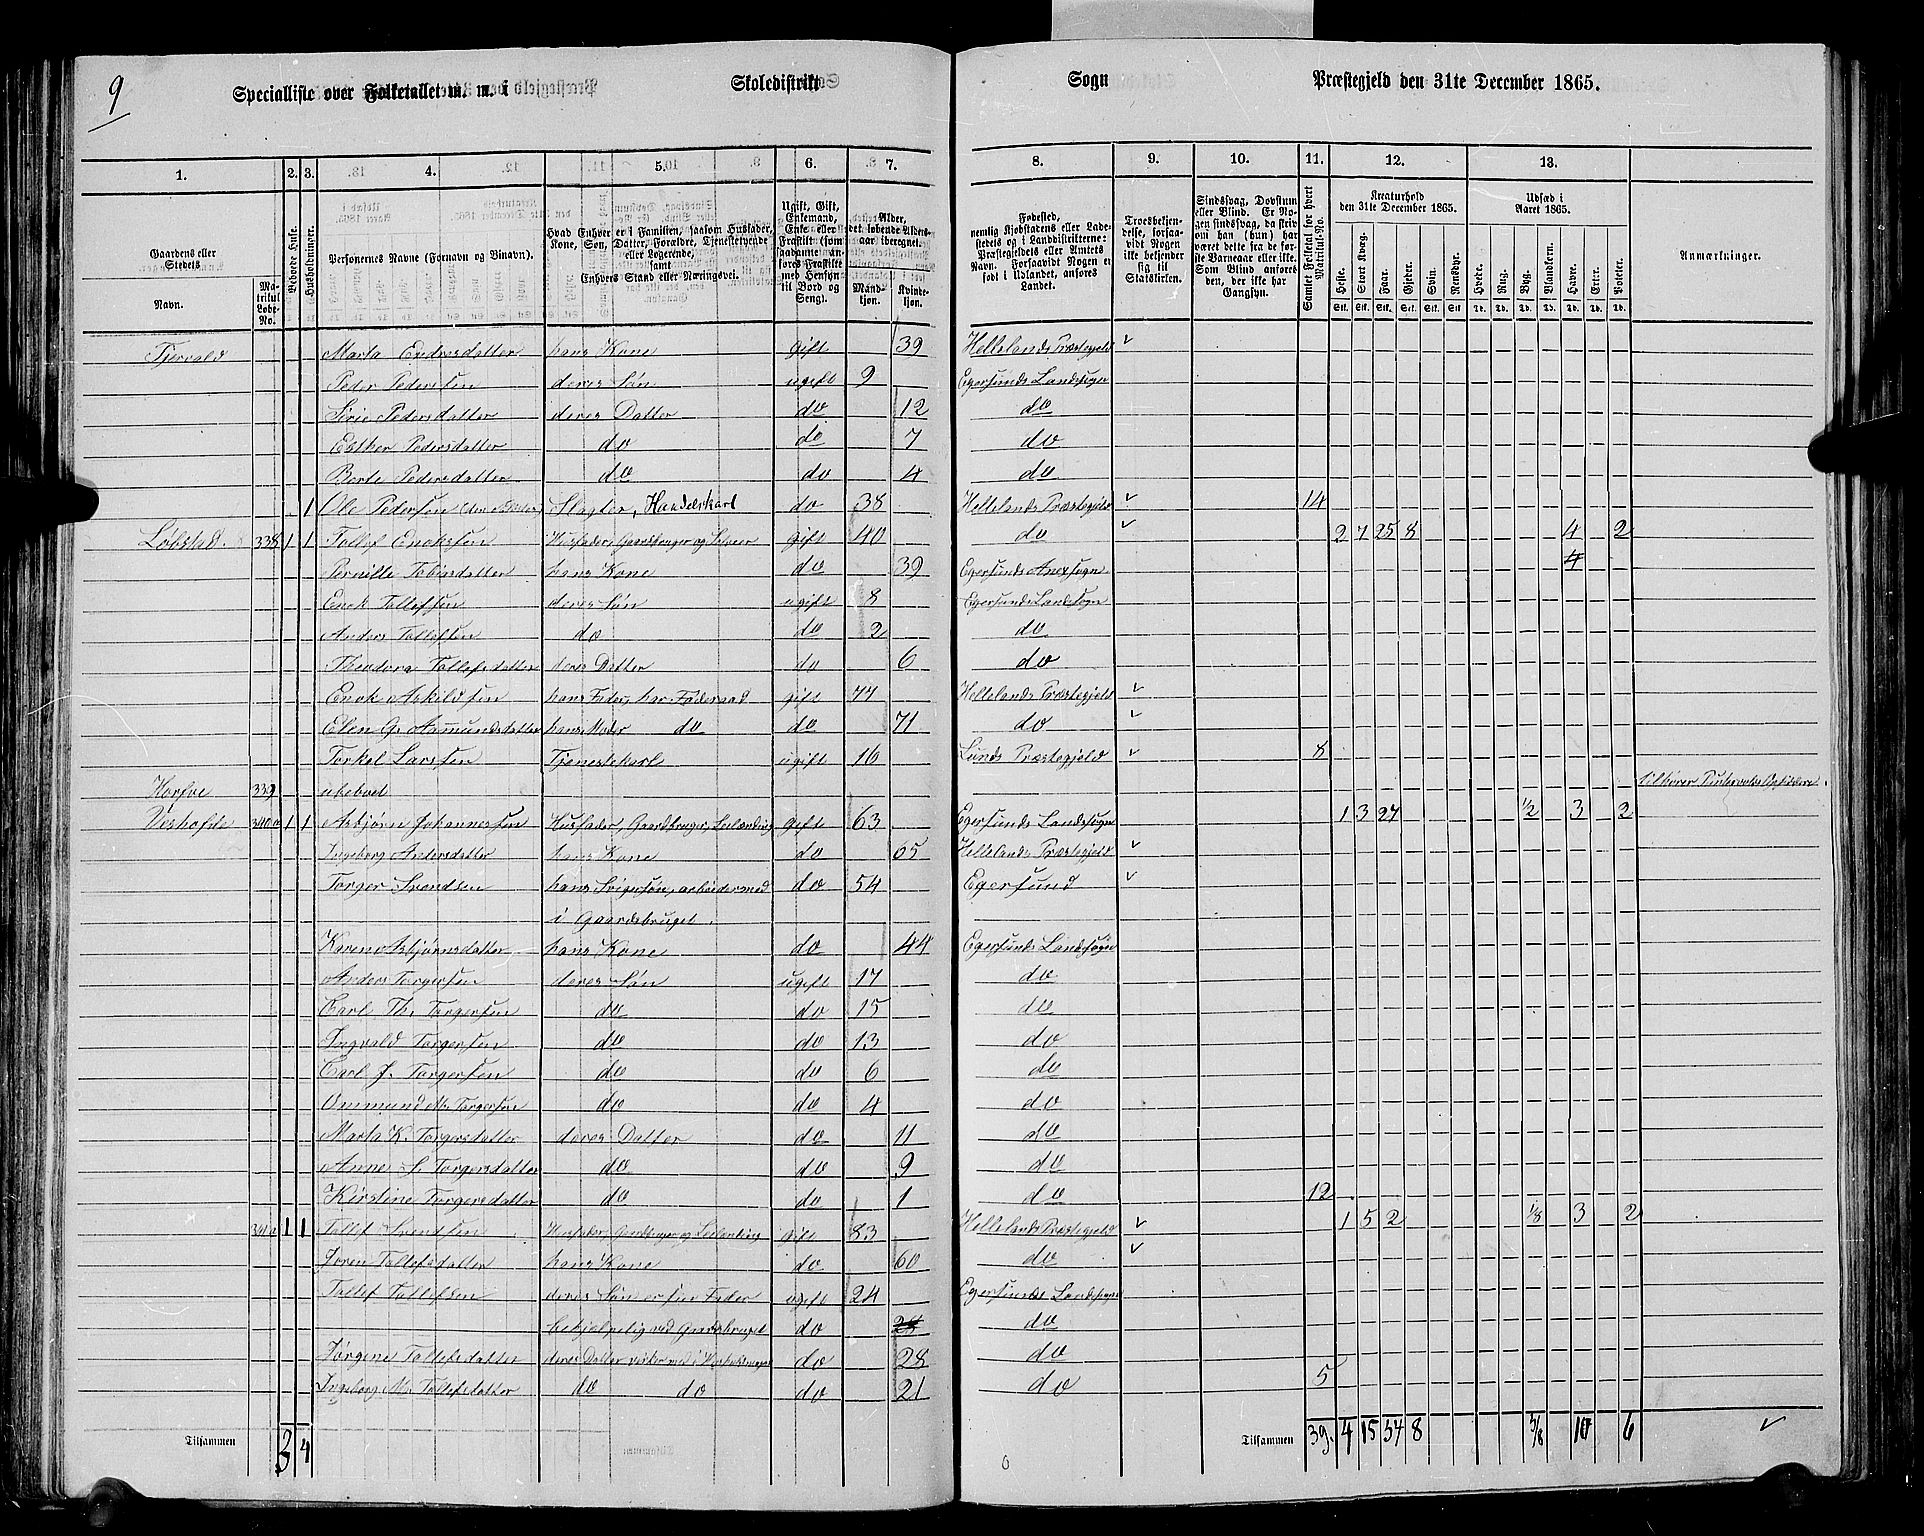 9
Specialliste over Folketallet m. m. i Skoledistrikt Sogn Præstegjeld den 31te December 1865.
1. 2. 3. 4. 5. 6. 7. 8. 9. 10. 11. 12. 13.
Gaardens eller Stedets
Navn. Matrikul Løbe-No.
Beboede Huse.
Husholdninger.
Personernes Navne (Fornavn og Binavn).
Hvad Enhver er i Familien, saasom Husfader, Kone, Søn, Datter, Forældre, Tjenestetyende eller Logerende, samt Enhvers Stand eller Næringsvei.
Ugift, Gift, Enkemand, Enke eller Fraskilt (som saadanne anføres Fraskilte med Hensyn til Bord og Seng).
Alder, det løbende Aldersaar iberegnet.
Mandkjøn. Kvindekjøn.
Fødested, nemlig Kjøbstadens eller Ladestedets og i Landdistrikterne: Præstegjeldets eller Amtets Navn. Forsaavidt Nogen er født i Udlandet, anføres Landet.
Troesbekjendelse, forsaavidt Nogen ikke bekjender sig til Statskirken.
Sindssvag, Døvstum eller Blind. Er Nogen sindssvag, da skrives om han (hun) har været dette fra de første Barneaar eller ikke. Som Blind anføres den, der ikke har Gangsyn.
Samlet Folketal for hvert Matrikul-No.
Kreaturhold den 31te December 1865.
Heste. Stort Kvæg. Faar. Gjeder. Svin. Rensdyr.
Udsæd i Aaret 1865.
Hvede. Rug. Byg. Blandkorn. Havre. Erter. Poteter.
Anmærkninger.
Tjervald Marta Endresdatter hans Kone gift 39 Hellelands Præstegjeld
Peder Pedersen deres Søn ugift 9 Egersunds Landsogn
Sirie Pedersdatter deres Datter do 12 do
Esther Pedersdatter do do 7 do
Berte Pedersdatter do do 4 do
1 Ole Pedersen Slagter, Handelskarl do 38 Hellelands Præstegjeld 14
Løbstad. 338 1 1 Tollef Enoksen Husfader, Gaardbruger og Selveier gift 40 do 2 7 25 8 4 2
Pernille Tobiasdatter hans Kone do 39 Egersunds Anexsogn 4
Enok Tollefsen deres Søn ugift 8 Egersunds Landsogn
Anders Tollefsen do do 2 do
Theodora Tollefsdatter deres Datter do 6 do
Enok Askildsen hans Fader, har Føderaad gift 77 Hellelands Præstegjeld
Elen G. Asmundsdatter hans Moder do do 71 do
Torkel Larsen Tjenestekarl ugift 16 Lunds Præstegjeld 8
339 ubeboet
340a 1 1 Asbjørn Johannessen Husfader, Gaardbruger, Leilænding gift 63 Egersunds Landsogn 1 3 27 1/2 3 2
Ingeborg Andersdatter hans Kone do 65 Hellelands Præstegjeld
Torger Svendsen hans Svigersøn, arbeider med do 54 Egersund
i Gaardsbruget.
Karen Asbjørnsdatter hans Kone do 44 Egersunds Landsogn
Anders Torgersen deres Søn ugift 17 do
Carl Th. Torgersen do do 15 do
Ingvald Torgersen do do 13 do
Carl J. Torgersen do do 6 do
Ommund Torgersen do do 4 do
Marta K. Torgersdatter deres Datter do 11 do
Anne S. Torgersdatter do do 9 do
Kirstine Torgersdatter do do 1 do 12
341a 1 1 Tollef Svendsen Husfader, Gaardbruger og Leilænding gift 83 Hellelands Præstegjeld 1 5 2 1/8 3 2
Joren Tollefsdatter hans Kone do 60 do
Tollef Tollefsen deres Søn er sin Fader ugift 24 Egersunds Landsogn
behjelpelig ved Gaardsbruget do do
Jørgine Tollefsdatter deres Datter do 28 do
Ingeborg M. Tollefsdatter do do do 21 do 5
Tilsammen 3 4 Tilsammen 39. 4 15 54 8 5/8 10 6